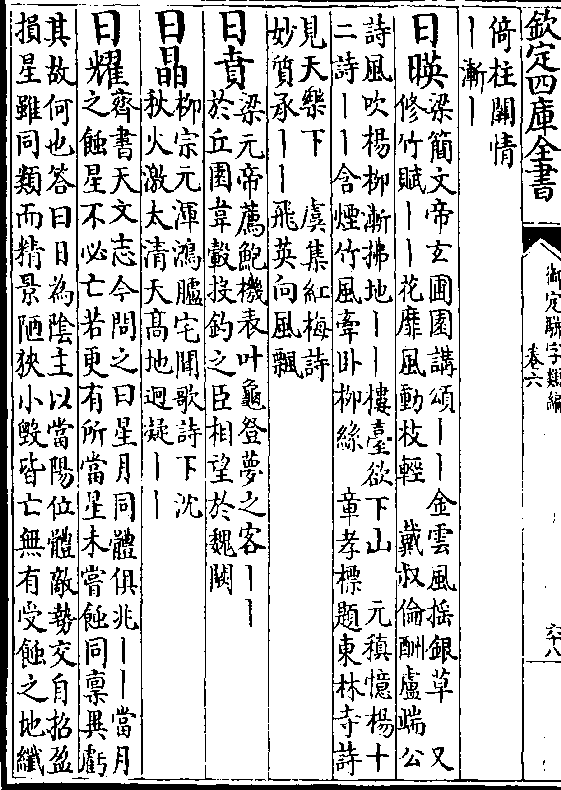 欽定四庫全書
御定駢字類編
卷六
六十八
倚柱關情
丨漸丨
日暎
梁簡文帝玄圃園講頌丨丨金雲風揺銀草 又
修竹賦丨丨花靡風動枝輕 戴叔倫酬盧端公
詩風吹楊柳漸拂地丨丨樓臺欲下山 元稹憶楊十
二詩丨丨含煙竹風牽卧柳絲 章孝標題東林寺詩
見天樂下 虞集紅梅詩
妙質承丨丨飛英向風飄
日賁
梁元帝薦鮑機表叶龜登夢之客丨丨
於丘園韋轂投釣之臣相望於魏闕
日晶
柳宗元渾鴻臚宅聞歌詩下沈
秋火激太清天髙地逈凝丨丨
日耀
齊書天文志今問之曰星月同體俱兆丨丨當月
之蝕星不必亡若更有所當星未嘗蝕同禀異虧
其故何也答曰日為陰主以當陽位體敵勢交自招盈
損星雖同類而精景陋狹小毀皆亡無有受蝕之地纖